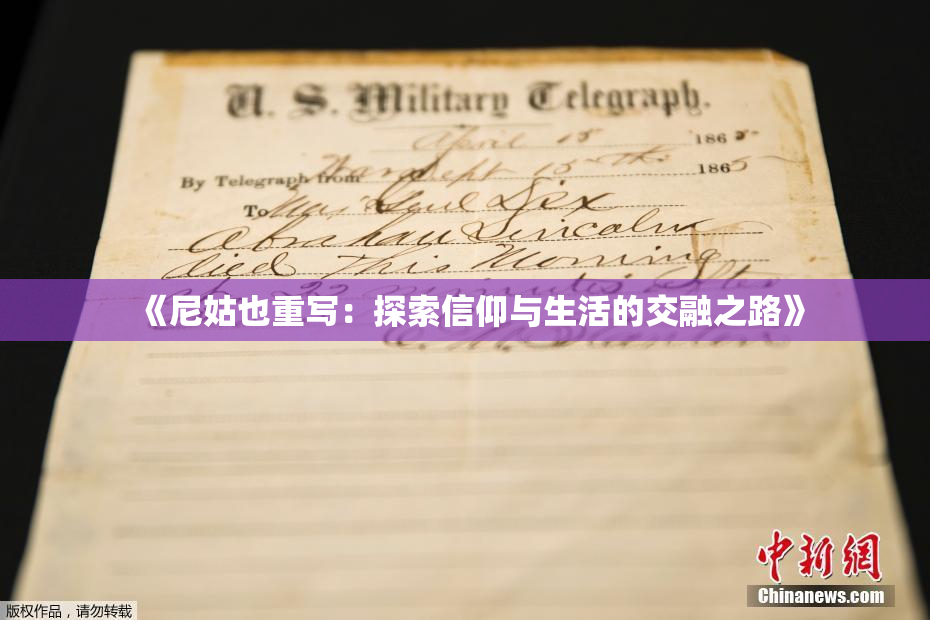 U. S. Military Telegraph.
April 15 1865
By Telegraph from War Dept 15th 1865
To Maj Genl Dix
Abraham Lincoln
died This Morning
at 22 minutes after
《尼姑也重写：探索信仰与生活的交融之路》
E. M. Stanton
中新网
Chinanews.com
版权作品，请勿转载